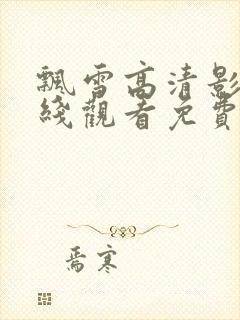 飄雪高清影
綫觀看免費
焉寒